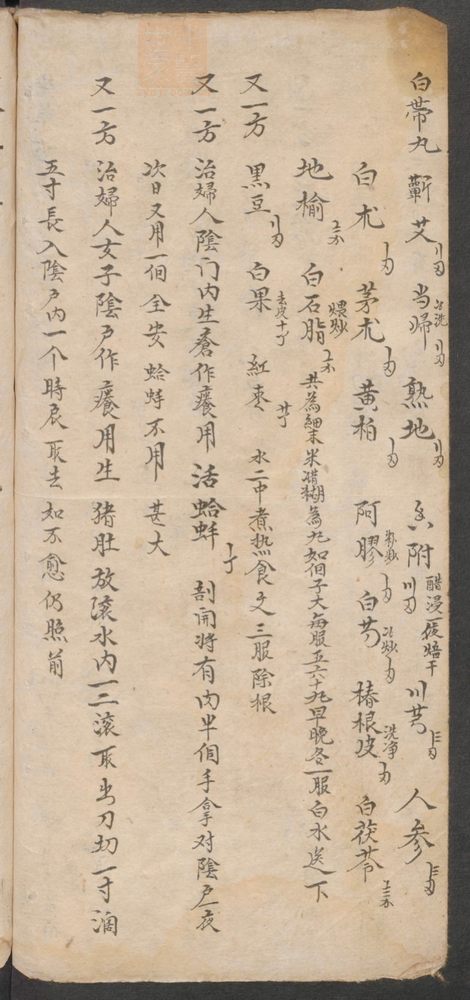 白帯丸 蕲艾 当归 酒洗 熟地 香附 醋浸一夜焙干 川芎 人参
白朮 茅朮 黄柏 阿膠 麸炒 白芍 酒炒 椿根皮 洗净 白茯苓
地榆 白石脂 煨炒 共為細末米醋糊為丸如佰子大每服五六十丸早晚各一服白水送下
又一方 黑豆 白果 去皮十个 紅枣 廿个 水二中煮热食之三服除根
又一方 治婦人陰门内生瘡作癢用活蛤蚌一个 剖開将有肉半個手拿对陰户一夜
次日又用一個全安 蛤蚌不用甚大
又一方 治婦人女子陰户作癢用生猪肚放滚水内一二滚取出刀切一寸濶
五寸長入陰户内一个時辰取去 如不愈仍照前